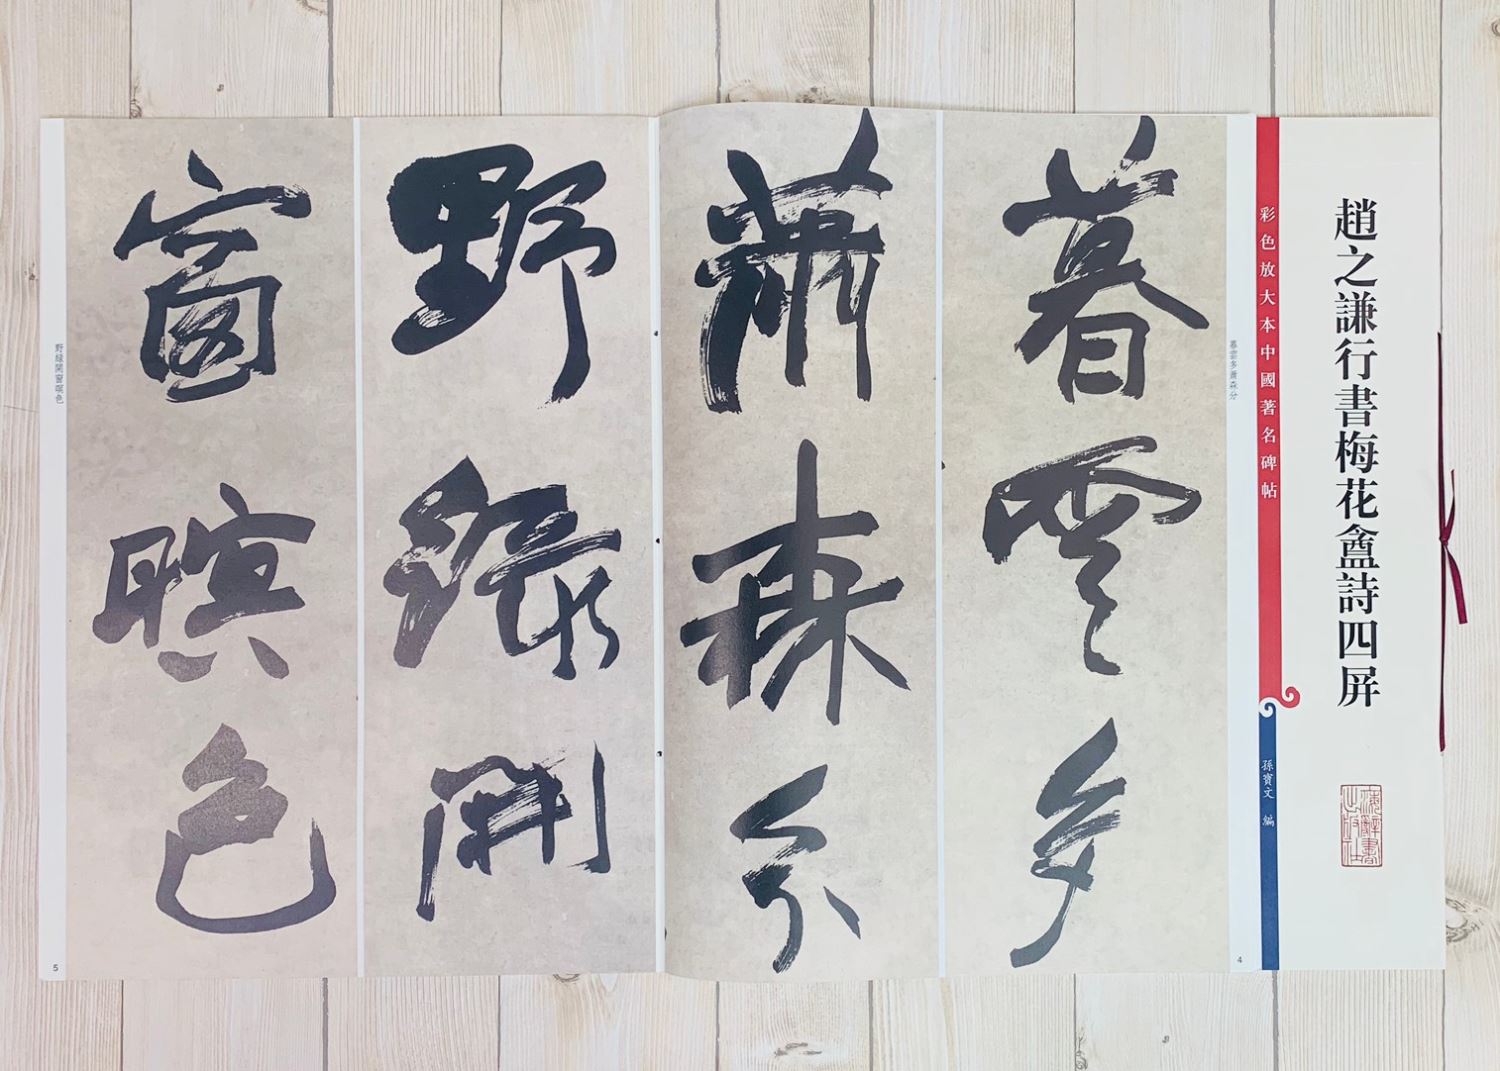 趙之謙行書梅花盦詩四屏
上海辭書出版社
彩色放大本中國著名碑帖
孫寶文 編
暮雲多蕭森分
暮雲多
蕭森分
4
野綠開
窗暝色
野綠開窗暝色
5